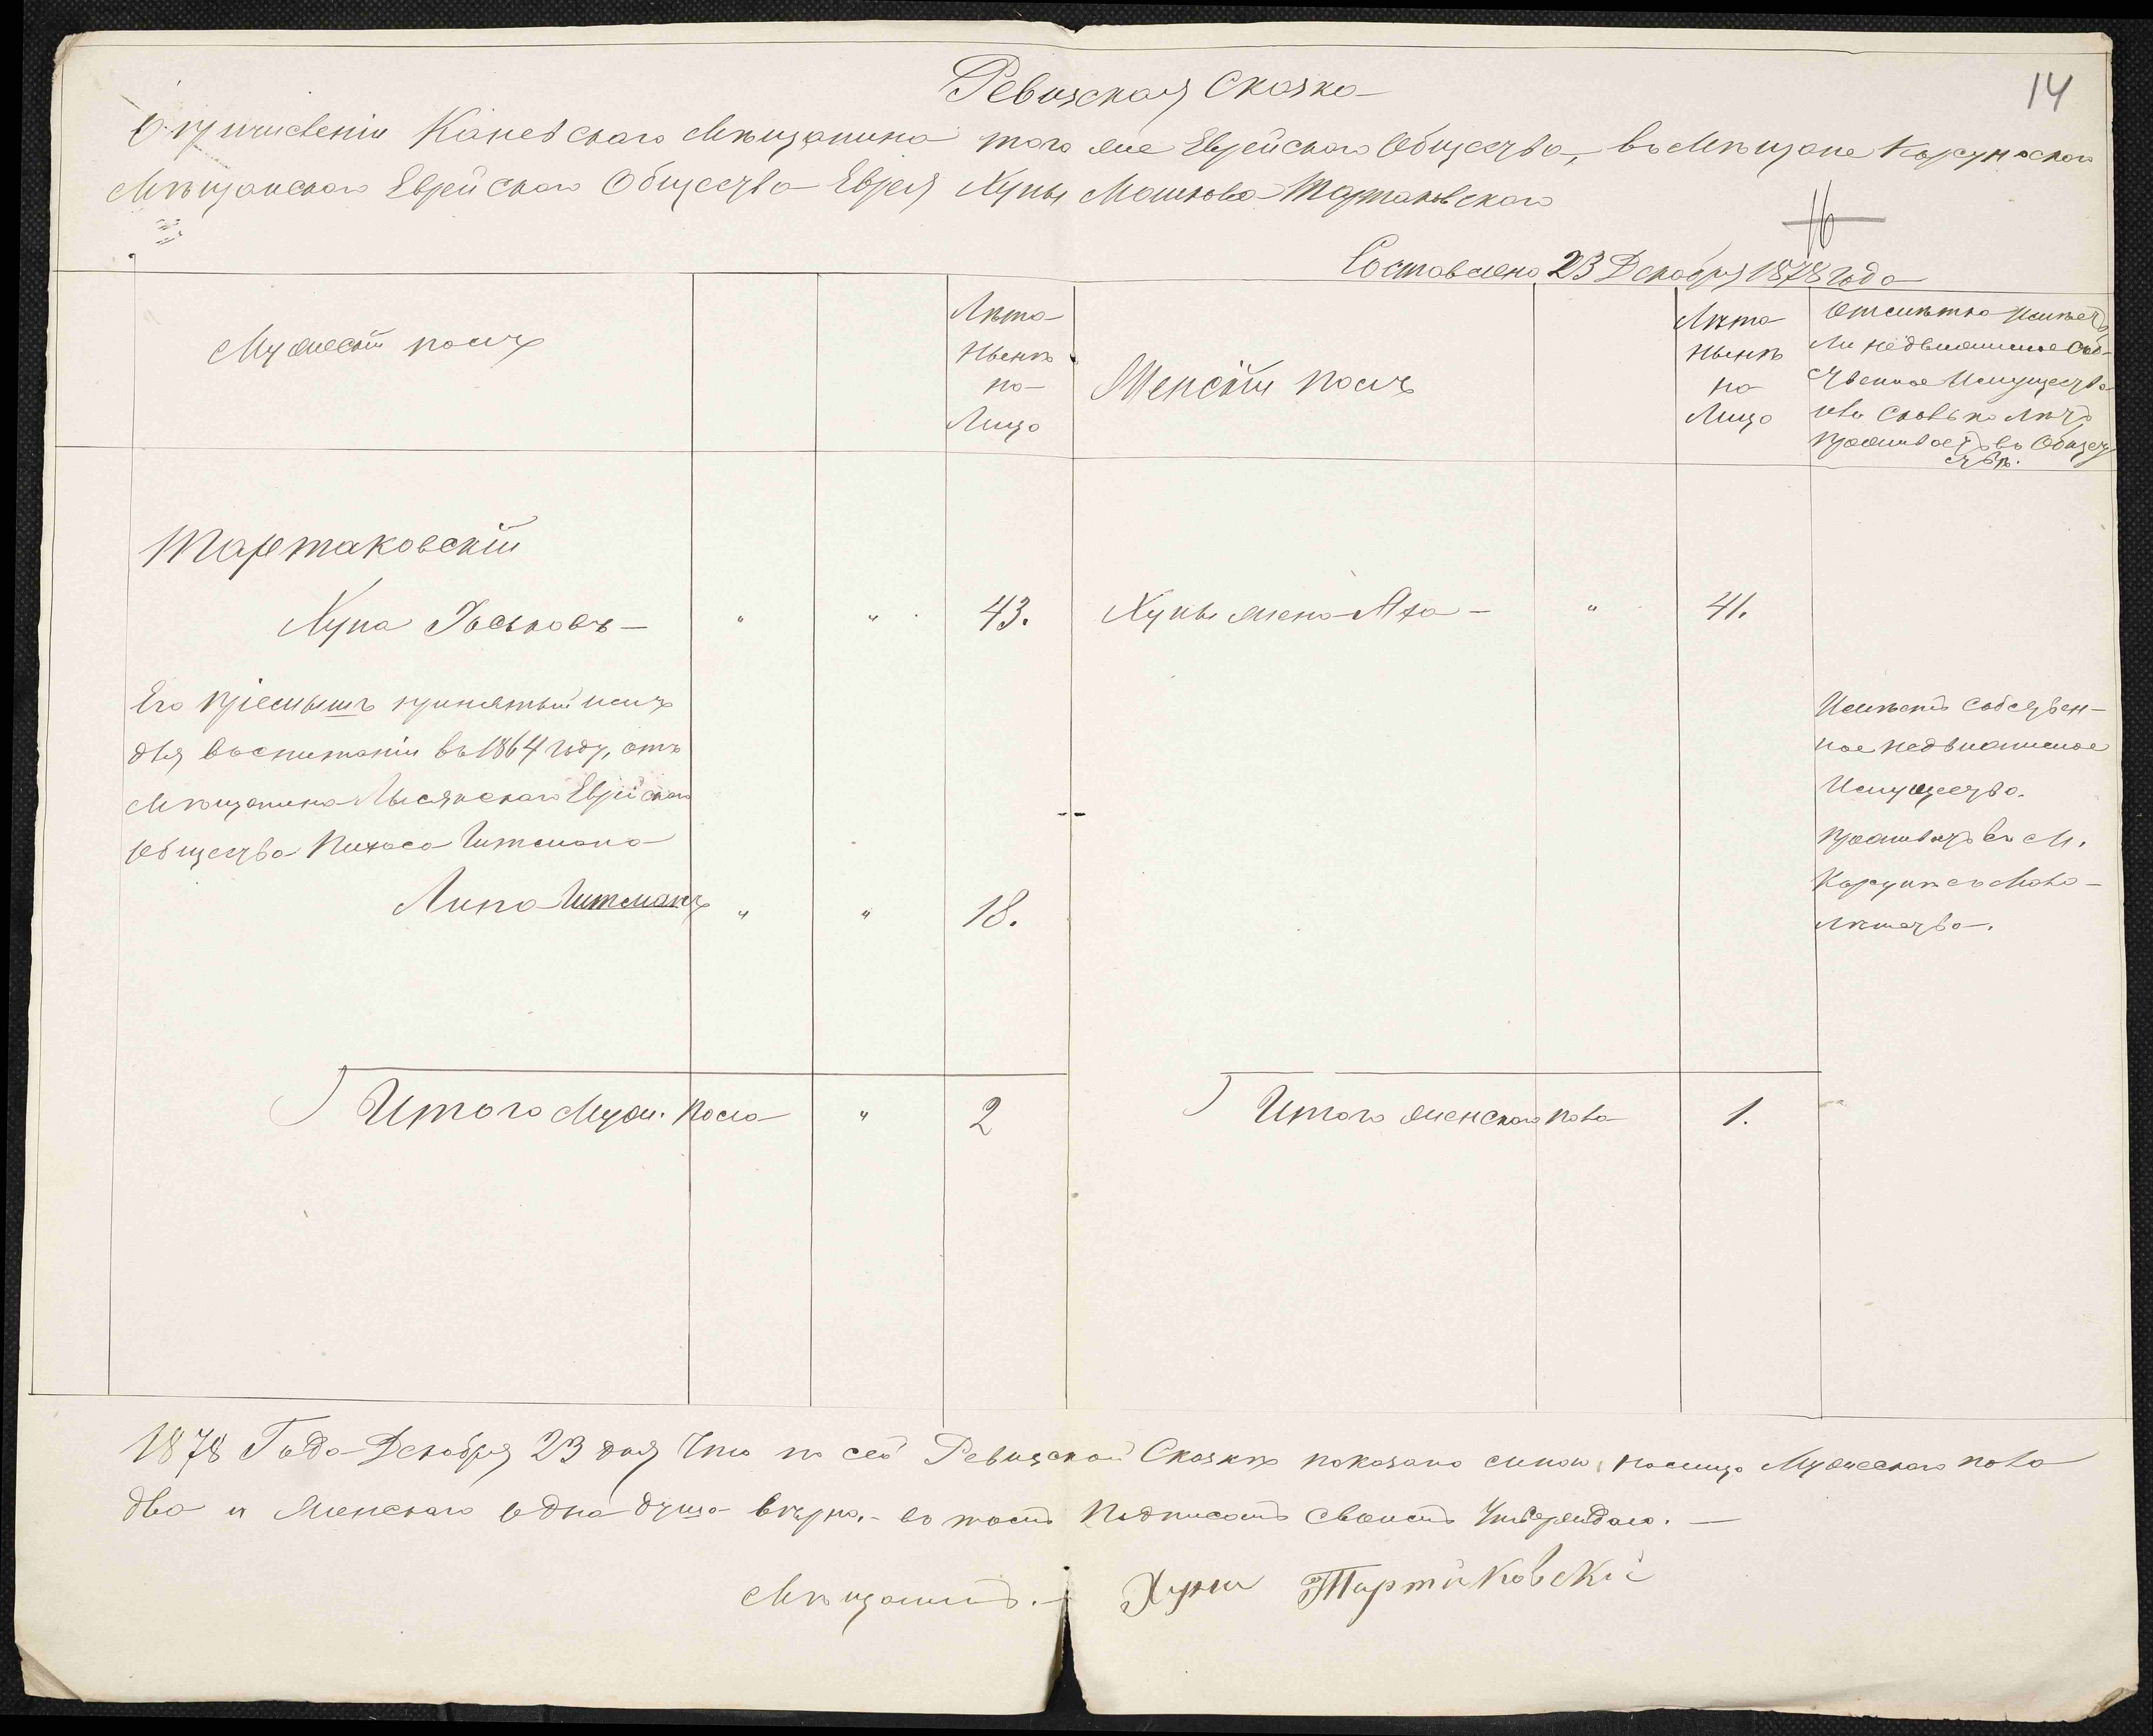 14
Ревизская Сказка
О причислении Каневскаго Мѣщанина того же Еврейскаго Общества, въ Мѣщане Корсунскаго
Мѣщанскаго Еврейскаго Общества Еврея Хуны Мошкова Тартаковскаго
16
Составлена 23 Декабря 1878 года
Мужескій полъ
Лѣта
Нынѣ
на
Лицо
Женскій полъ
Лѣта
Нынѣ
на
Лицо
Отмѣтка Имѣетъ
Ли недвижимое Соб-
ственное Имущество
или сколько лѣтъ
проживаетъ въ Общес
твѣ.
Тартаковскій
Хуна Іоськовъ — " " 43. Хуны жена Хая — " 41.
Его пріемышъ принятый имъ
для воспитанія въ 1864 году, отъ
Мѣщанина Лысянскаго Еврейскаго
Общества Пинхаса Гитмана
Липа Гитманъ " " 18.
Имѣетъ собствен-
ное недвижимое
Имущество.
Проживаетъ въ М.
Корсунѣ съ Мало-
лѣтства.
Итого Муж. Пола " 2
Итого женскаго пола 1.
1878 Года Декабря 23 дня Что по сей Ревизской Сказкѣ показано мною, налицо Мужескаго пола
два и Женскаго одна душа вѣрно, въ томъ Подписомъ своимъ Утверждаю. —
Мѣщанинъ. — Хуна Тартаковскій